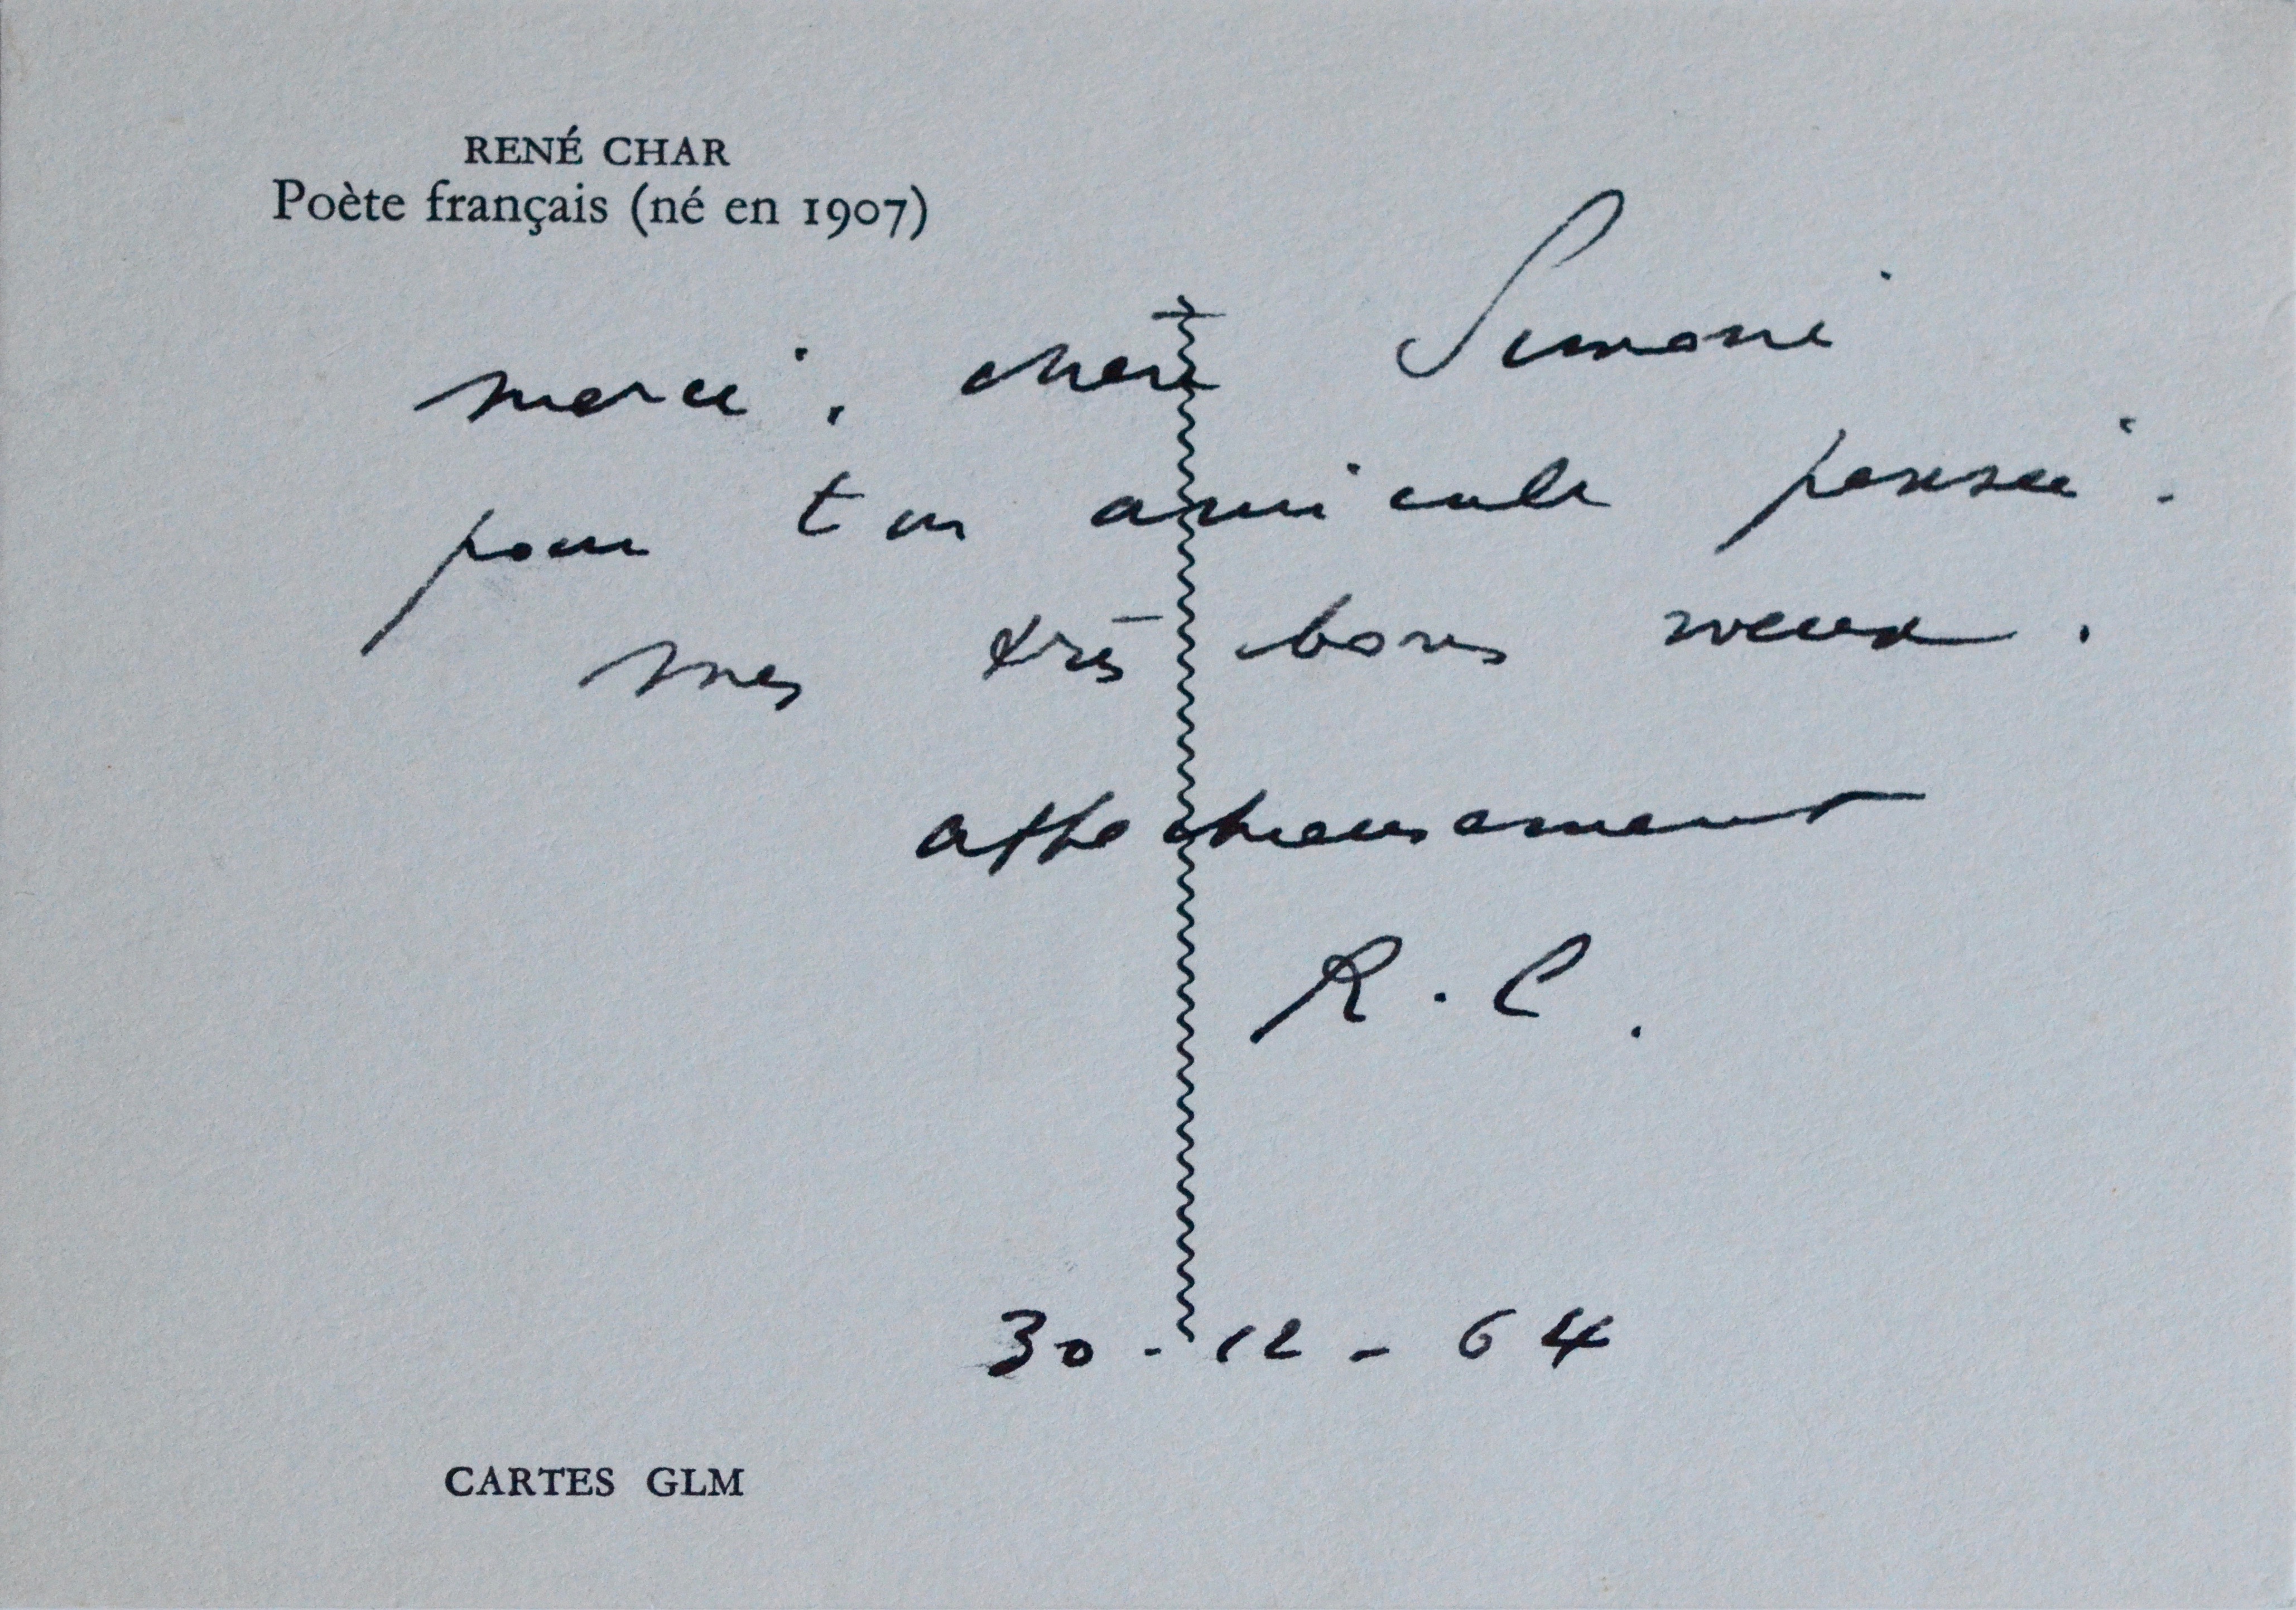 RENÉ CHAR
Poète français (né en 1907)
merci, chère Simone
pour ton amicale pensée.
mes très bons vœux.
affectueusement
R. C.
30 - 12 - 64
CARTES GLM